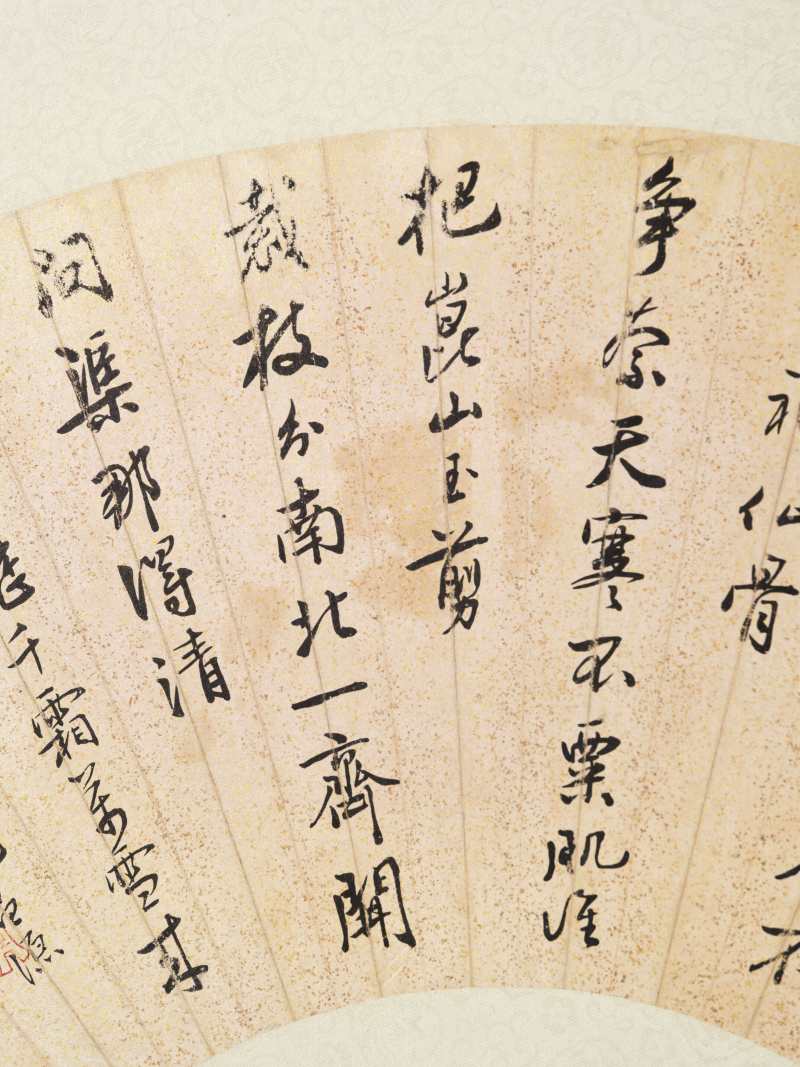 神仙骨
争奈天寒不粟肌誰
把崑山玉剪
裁枝分南北一齊開
問渠那得清
千霜萬雪来